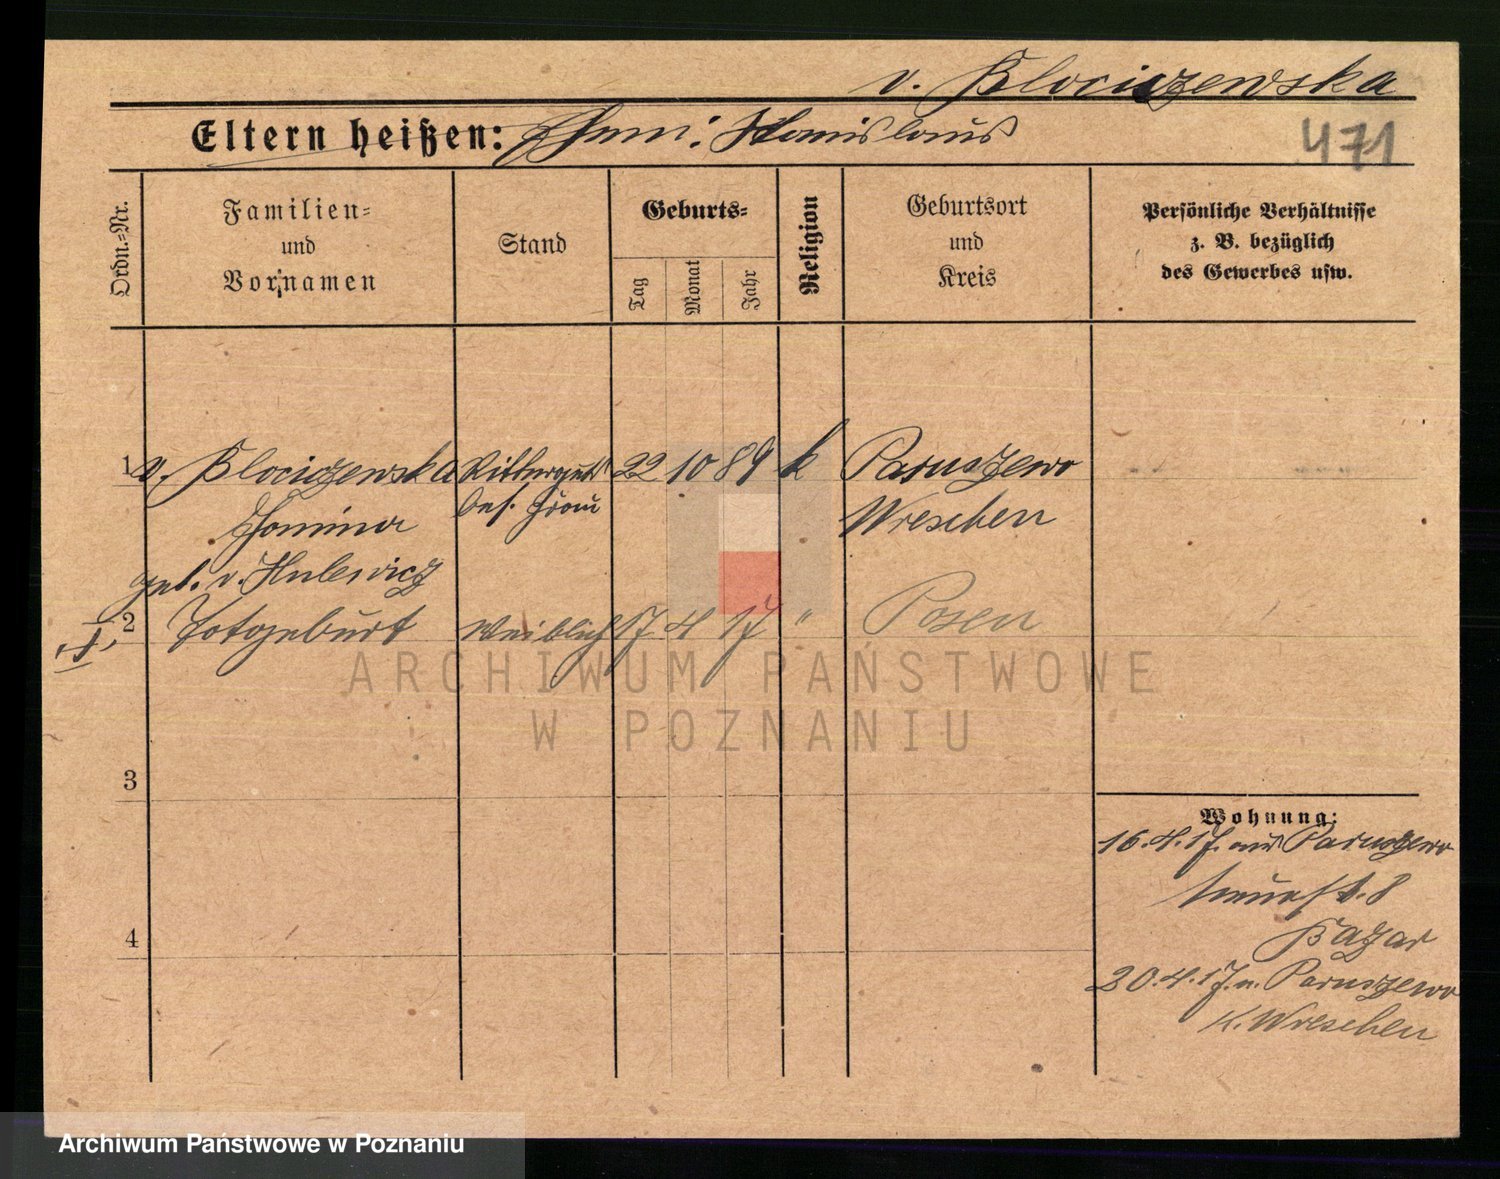 v. Klociczewska
Eltern heißen: Ehem: Stanislaus
471
Ordn.=Nr.
Familien=
und
Vornamen
Stand
Geburts=
Tag
Monat
Jahr
Religion
Geburtsort
und
Kreis
Persönliche Verhältnisse
z. B. bezüglich
des Gewerbes usw.
1 v. Klociczewska Ritterguts 22 10 89 k Paruszewo
bes. Frau Wreschen
geb. v. Hulewicz
2 Totgeburt weiblich 17 4 17 " Posen
3
4
Wohnung:
16.4.17. aus Paruszewo
Neuestr. 8
Bazar
20.4.17. n. Paruszewo
K. Wreschen
ARCHIWUM PAŃSTWOWE
W POZNANIU
Archiwum Państwowe w Poznaniu